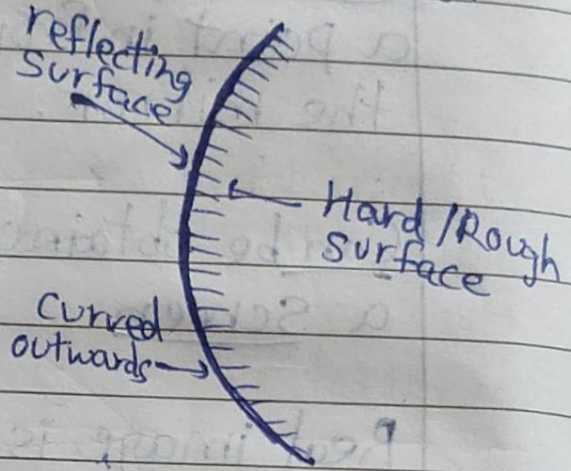 reflecting
surface
Hard/Rough
surface
curved
outwards